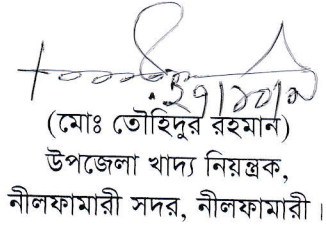 (মোঃ তৌহিদুর রহমান)
উপজেলা খাদ্য নিয়ন্ত্রক,
নীলফামারী সদর, নীলফামারী।